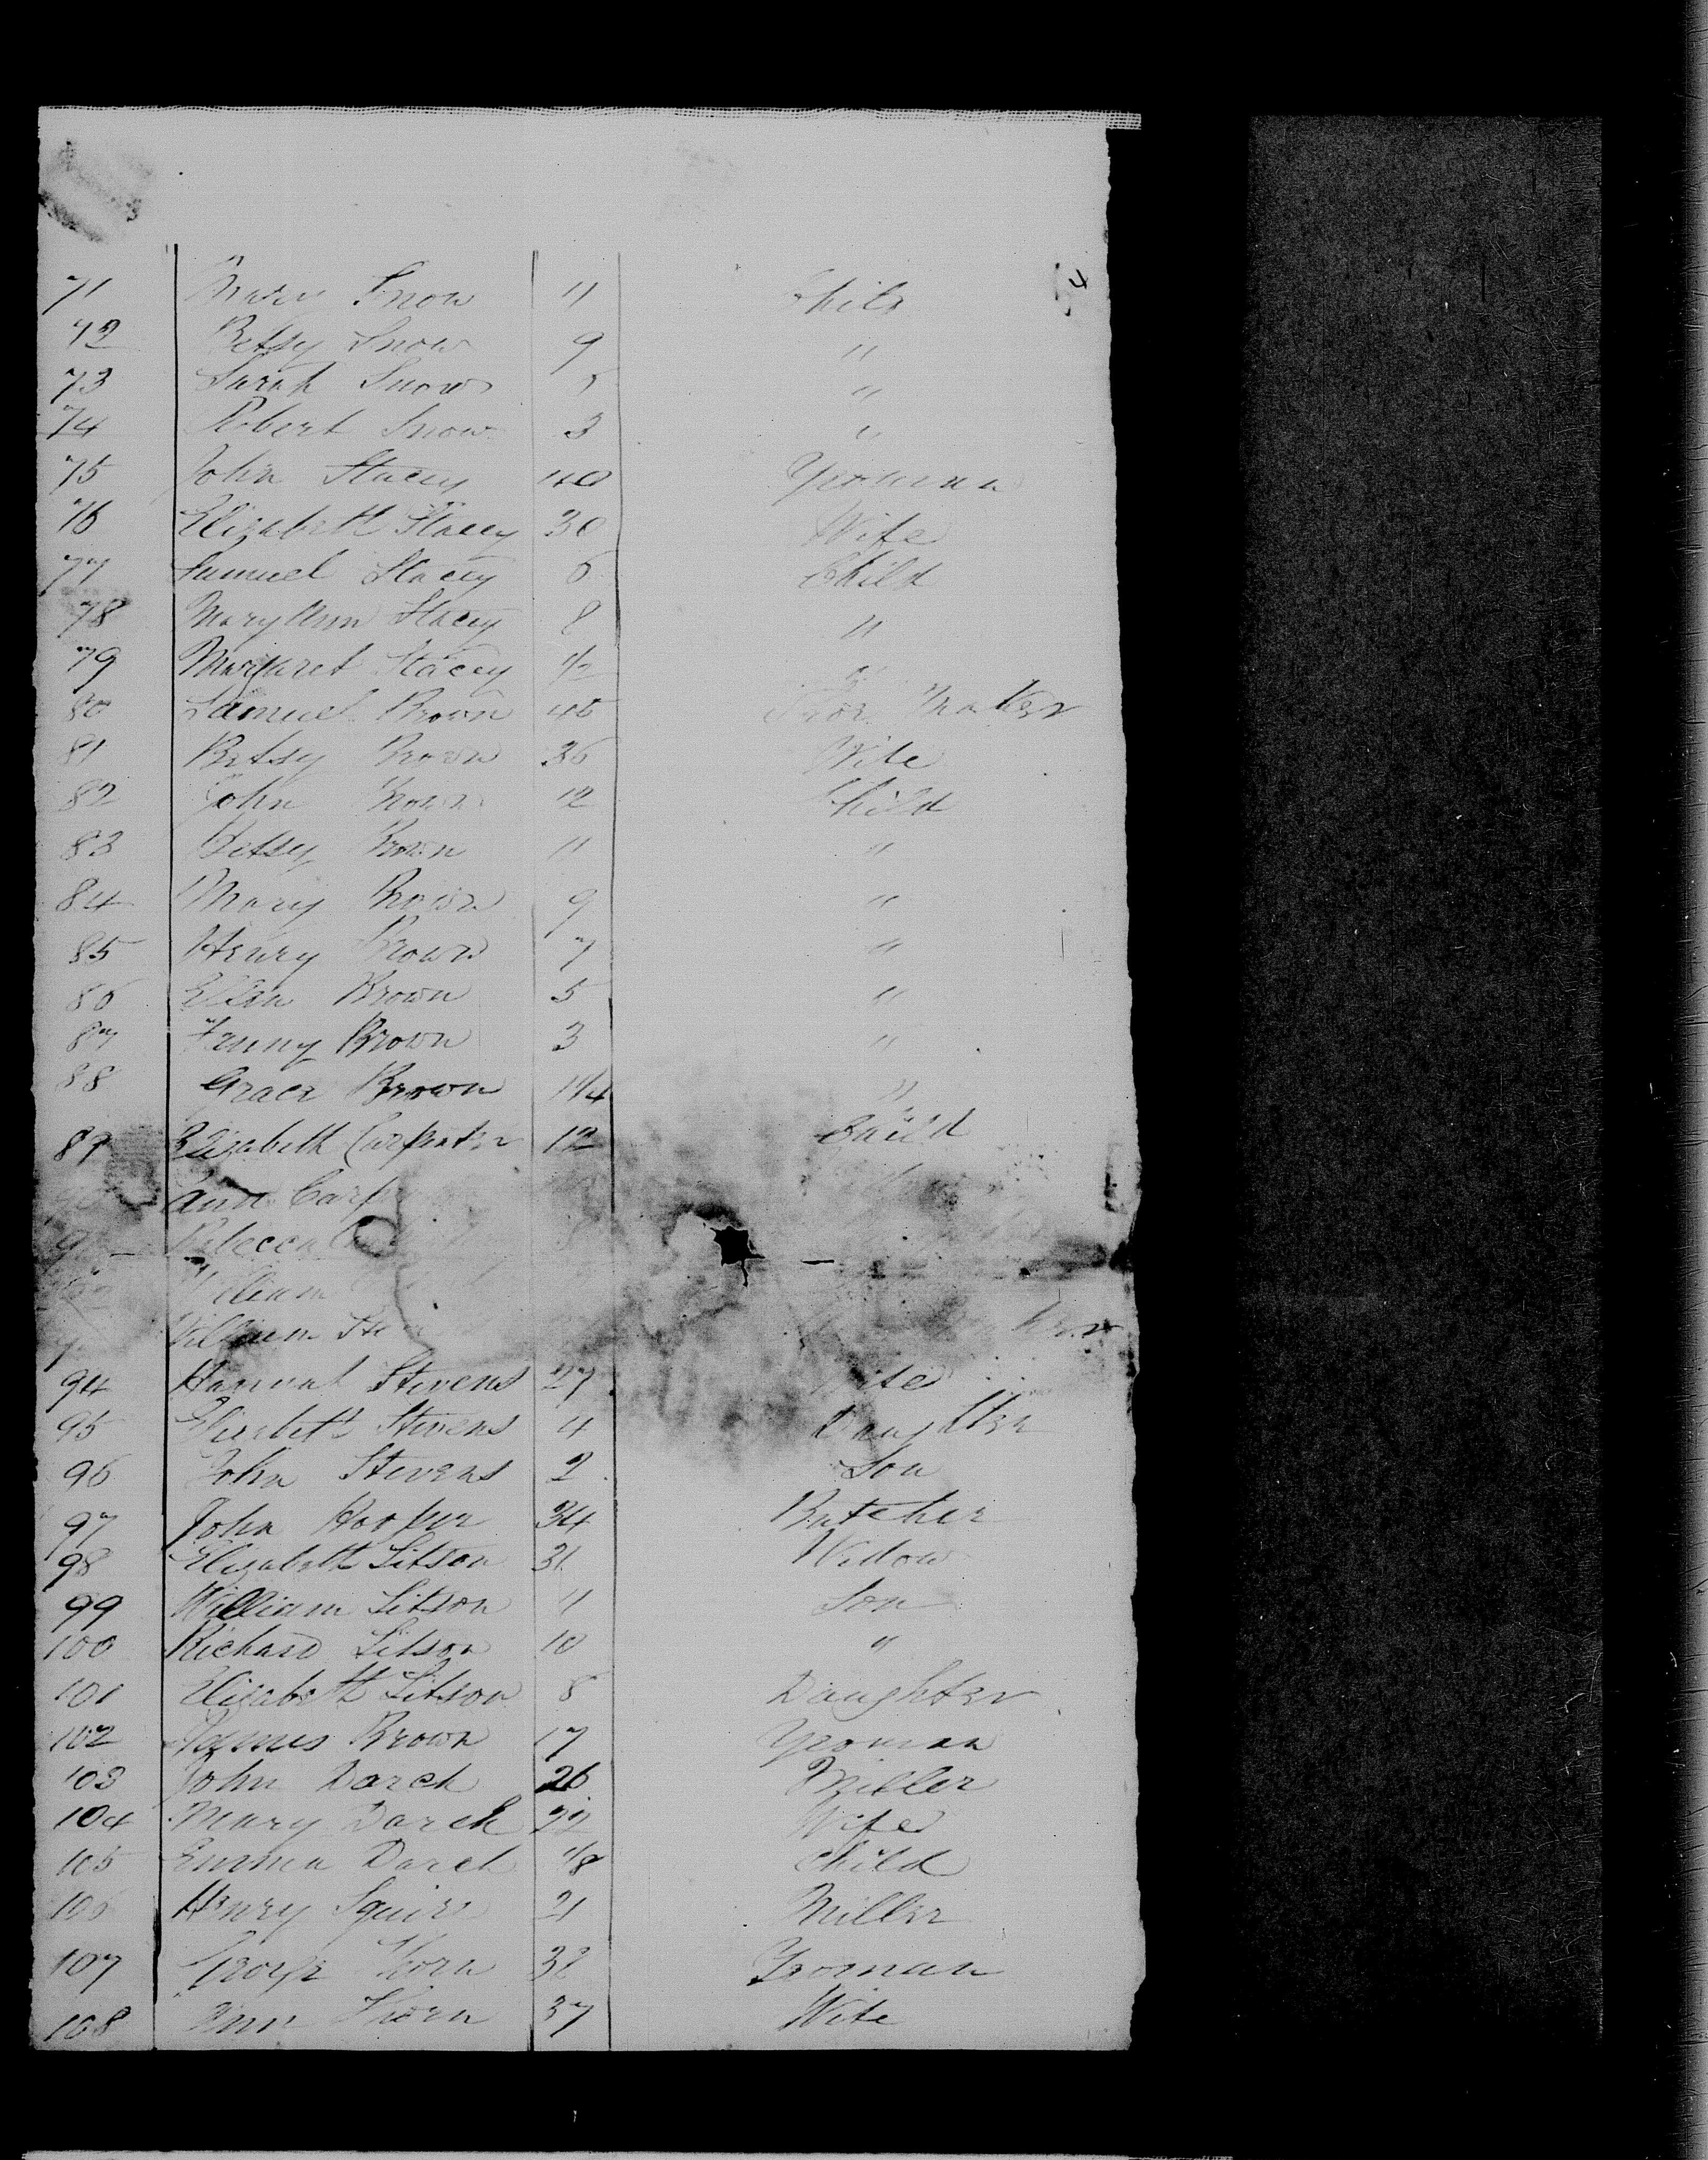 4
71 Mary Snow 11 Child
72 Betsy Snow 9 "
73 Sarah Snow 5 "
74 Robert Snow 3 "
75 John Stacey 40 Yeoman
76 Elizabeth Stacey 30 Wife
77 Samuel Stacey 6 Child
78 Mary Ann Stacey 8 "
79 Margaret Stacey 1/2 "
80 Samuel Brown 45 Maker
81 Betsy Brown 36 Wife
82 John Brown 12 Child
83 Betsy Brown 11 "
84 Mary Brown 9 "
85 Henry Brown 7 "
86 Ellen Brown 5 "
87 Fanny Brown 3 "
88 Grace Brown 1 1/4 "
89 Elizabeth Carpenter 12 Child
Ann
Rebecca
William
William
94 Hannah Stevens 27 Wife
95 Elizabeth Stevens 4 Daughter
96 John Stevens 2 Son
97 John Hooper 34 Butcher
98 Elizabeth Litson 31 Widow
99 William Litson 11 Son
100 Richard Litson 10 "
101 Elizabeth Litson 8 Daughter
102 James Brown 17 Yeoman
103 John Darch 26 Miller
104 Mary Darch 22 Wife
105 Emma Darch 1/8 Child
106 Henry Squire 21 Miller
107 George Thorn 38 Yeoman
108 Ann Thorn 37 Wife